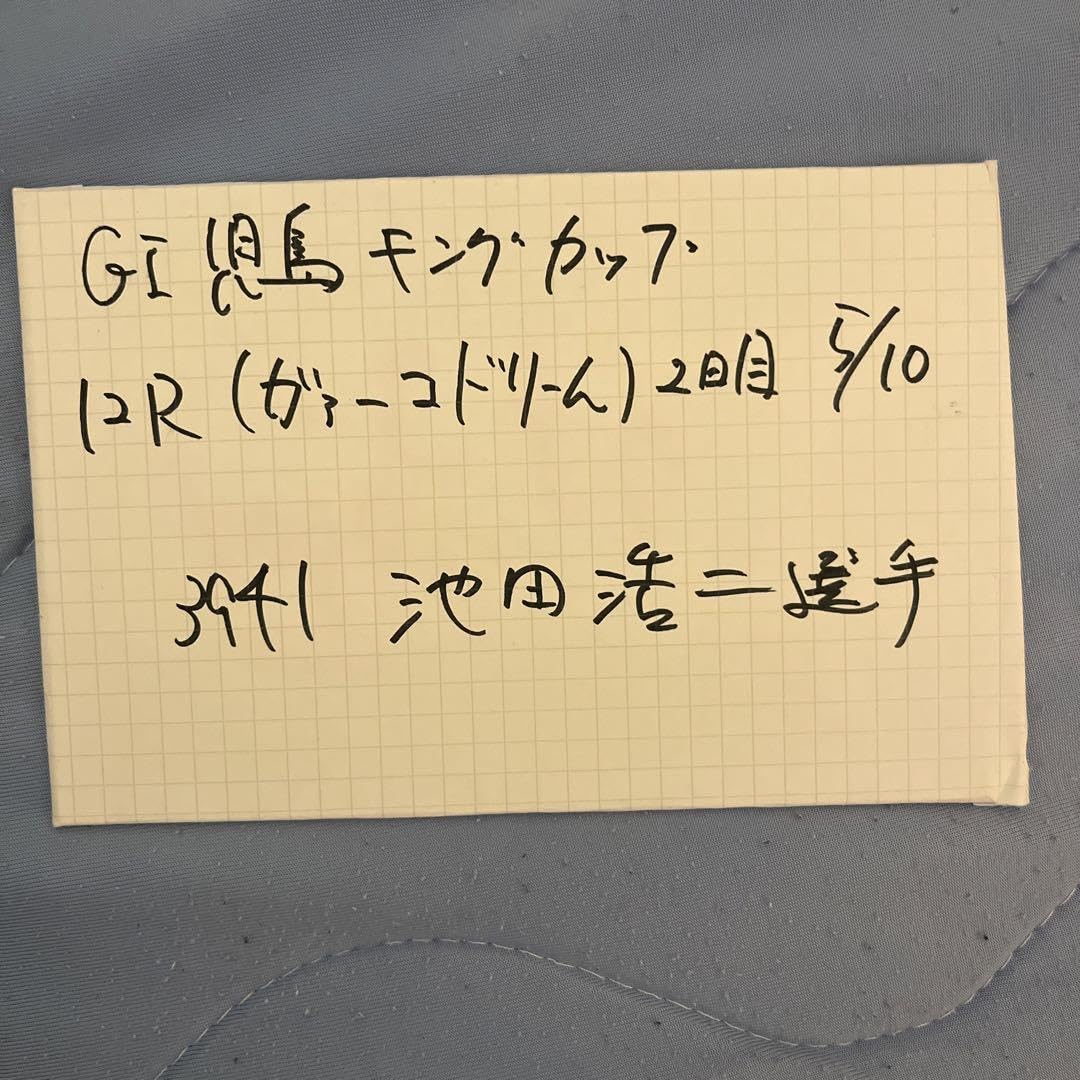 GI 児島 キングカップ
12R (ガァーコドリーム) 2日目 5/10
3941 池田浩二選手